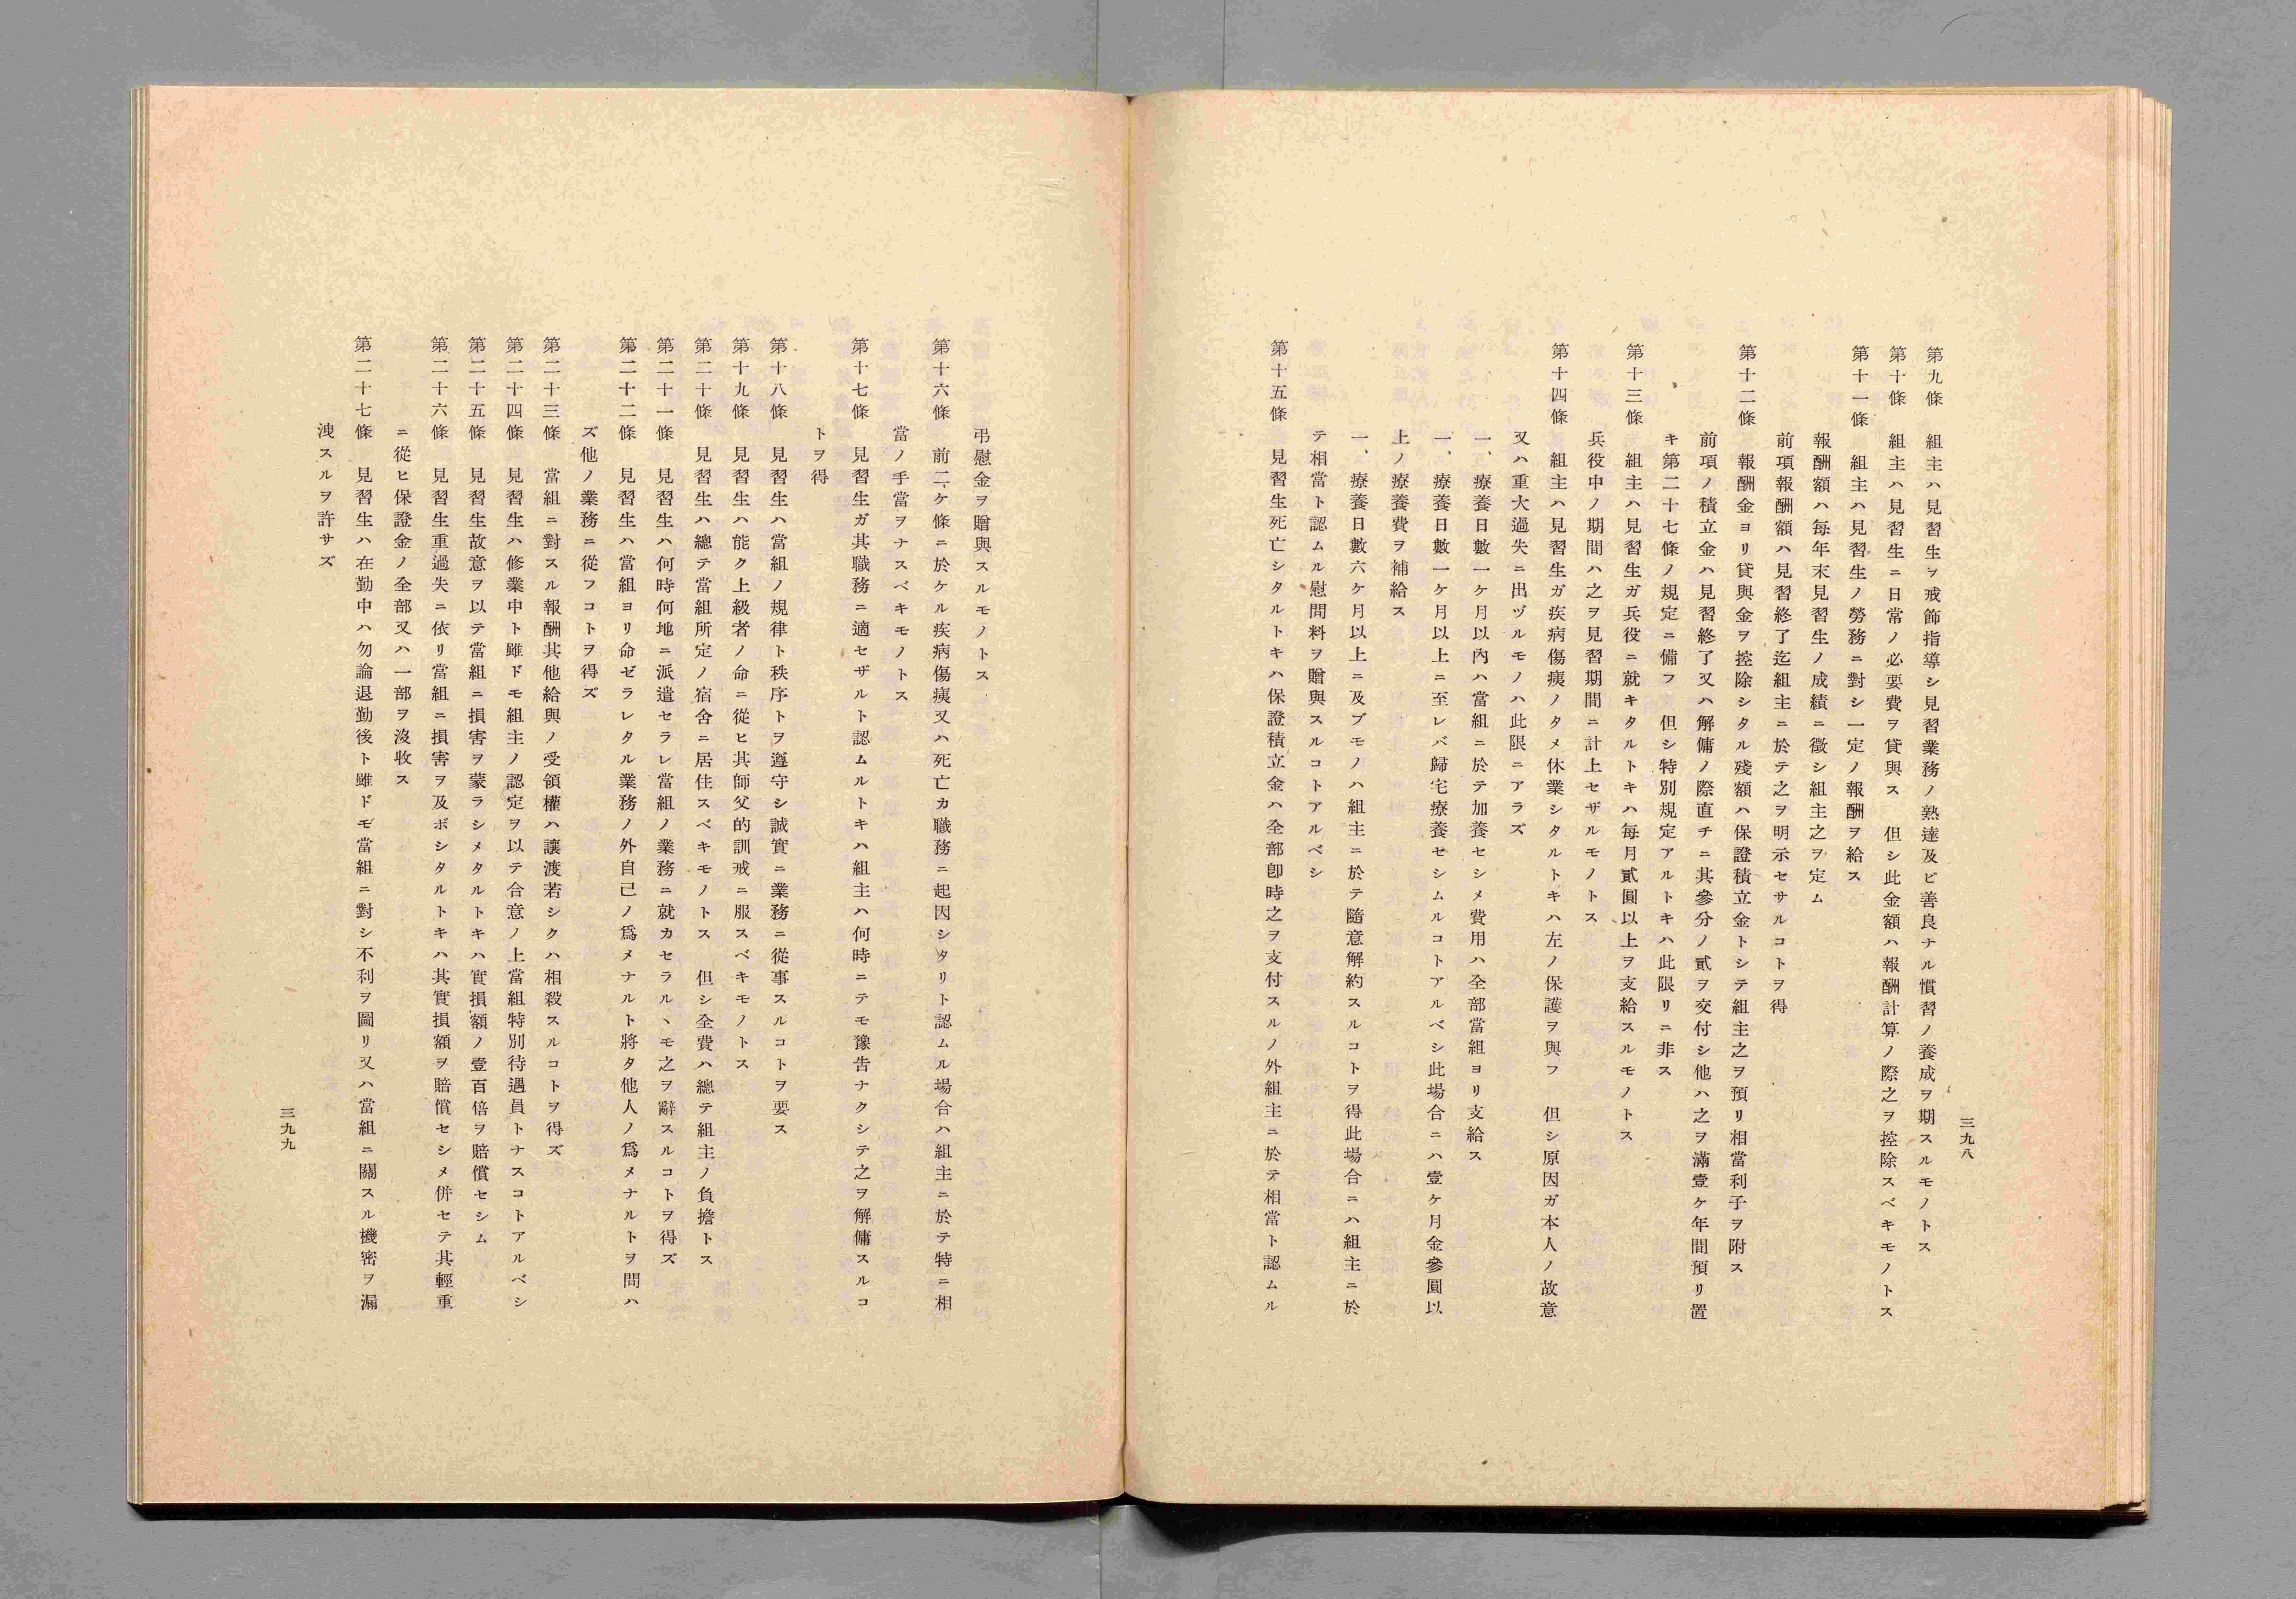 三九八
第九條　組主ハ見習生ヲ戒飾指導シ見習業務ノ熟達及ビ善良ナル慣習ノ養成ヲ期スルモノトス
第十條　組主ハ見習生ニ日常ノ必要費ヲ貸與ス　但シ此金額ハ報酬計算ノ際之ヲ控除スベキモノトス
第十一條　組主ハ見習生ノ勞務ニ對シ一定ノ報酬ヲ給ス
報酬額ハ每年末見習生ノ成績ニ徵シ組主之ヲ定ム
前項報酬額ハ見習終了迄組主ニ於テ之ヲ明示セサルコトヲ得
第十二條　報酬金ヨリ貸與金ヲ控除シタル殘額ハ保證積立金トシテ組主之ヲ預リ相當利子ヲ附ス
前項ノ積立金ハ見習終了又ハ解傭ノ際直チニ其參分ノ貳ヲ交付シ他ハ之ヲ滿壹ケ年間預リ置
キ第二十七條ノ規定ニ備フ　但シ特別規定アルトキハ此限リニ非ス
第十三條　組主ハ見習生ガ兵役ニ就キタルトキハ每月貳圓以上ヲ支給スルモノトス
兵役中ノ期間ハ之ヲ見習期間ニ計上セザルモノトス
第十四條　組主ハ見習生ガ疾病傷痍ノタメ休業シタルトキハ左ノ保護ヲ與フ　但シ原因ガ本人ノ故意
又ハ重大過失ニ出ヅルモノハ此限ニアラズ
一、療養日數一ケ月以內ハ當組ニ於テ加養セシメ費用ハ全部當組ヨリ支給ス
一、療養日數一ケ月以上ニ至レバ歸宅療養セシムルコトアルベシ此場合ニハ壹ケ月金參圓以
上ノ療養費ヲ補給ス
一、療養日數六ケ月以上ニ及ブモノハ組主ニ於テ隨意解約スルコトヲ得此場合ニハ組主ニ於
テ相當ト認ムル慰問料ヲ贈與スルコトアルベシ
第十五條　見習生死亡シタルトキハ保證積立金ハ全部卽時之ヲ支付スルノ外組主ニ於テ相當ト認ムル
弔慰金ヲ贈與スルモノトス
第十六條　前二ケ條ニ於ケル疾病傷痍又ハ死亡カ職務ニ起因シタリト認ムル場合ハ組主ニ於テ特ニ相
當ノ手當ヲナスベキモノトス
第十七條　見習生ガ其職務ニ適セザルト認ムルトキハ組主ハ何時ニテモ豫告ナクシテ之ヲ解傭スルコ
トヲ得
第十八條　見習生ハ當組ノ規律ト秩序トヲ遵守シ誠實ニ業務ニ從事スルコトヲ要ス
第十九條　見習生ハ能ク上級者ノ命ニ從ヒ其師父的訓戒ニ服スベキモノトス
第二十條　見習生ハ總テ當組所定ノ宿舍ニ居住スベキモノトス　但シ全費ハ總テ組主ノ負擔トス
第二十一條　見習生ハ何時何地ニ派遣セラレ當組ノ業務ニ就カセラルヽモ之ヲ辭スルコトヲ得ズ
第二十二條　見習生ハ當組ヨリ命ゼラレタル業務ノ外自己ノ爲メナルト將タ他人ノ爲メナルトヲ問ハ
ズ他ノ業務ニ從フコトヲ得ズ
第二十三條　當組ニ對スル報酬其他給與ノ受領權ハ讓渡若シクハ相殺スルコトヲ得ズ
第二十四條　見習生ハ修業中ト雖ドモ組主ノ認定ヲ以テ合意ノ上當組特別待遇員トナスコトアルベシ
第二十五條　見習生故意ヲ以テ當組ニ損害ヲ蒙ラシメタルトキハ實損額ノ壹百倍ヲ賠償セシム
第二十六條　見習生重過失ニ依リ當組ニ損害ヲ及ボシタルトキハ其實損額ヲ賠償セシメ併セテ其輕重
ニ從ヒ保證金ノ全部又ハ一部ヲ沒收ス
第二十七條　見習生ハ在勤中ハ勿論退勤後ト雖ドモ當組ニ對シ不利ヲ圖リ又ハ當組ニ關スル機密ヲ漏
洩スルヲ許サズ
三九九